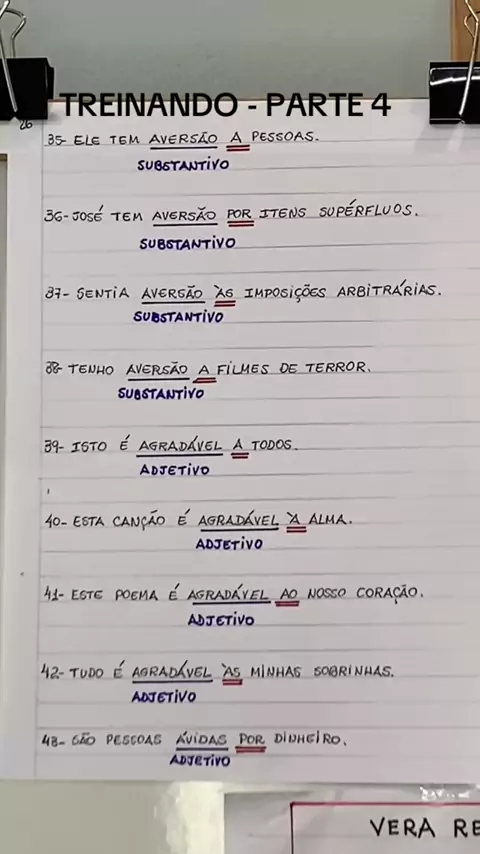 TREINANDO - PARTE 4
26
35- ELE TEM AVERSÃO A PESSOAS.
SUBSTANTIVO
36- JOSÉ TEM AVERSÃO POR ITENS SUPÉRFLUOS.
SUBSTANTIVO
37- SENTIA AVERSÃO ÀS IMPOSIÇÕES ARBITRÁRIAS.
SUBSTANTIVO
38- TENHO AVERSÃO A FILMES DE TERROR.
SUBSTANTIVO
39- ISTO É AGRADÁVEL A TODOS.
ADJETIVO
40- ESTA CANÇÃO É AGRADÁVEL À ALMA.
ADJETIVO
41- ESTE POEMA É AGRADÁVEL AO NOSSO CORAÇÃO.
ADJETIVO
42- TUDO É AGRADÁVEL ÀS MINHAS SOBRINHAS.
ADJETIVO
43- SÃO PESSOAS ÁVIDAS POR DINHEIRO.
ADJETIVO
VERA RE